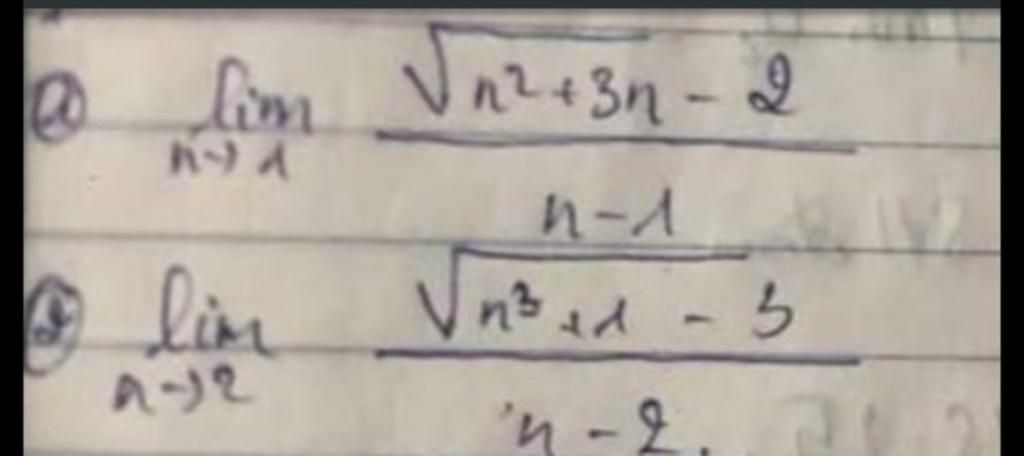 ① lim n→1 √(n²+3n) - 2
n-1
② lim n→2 √(n³+1) - 3
n-2.